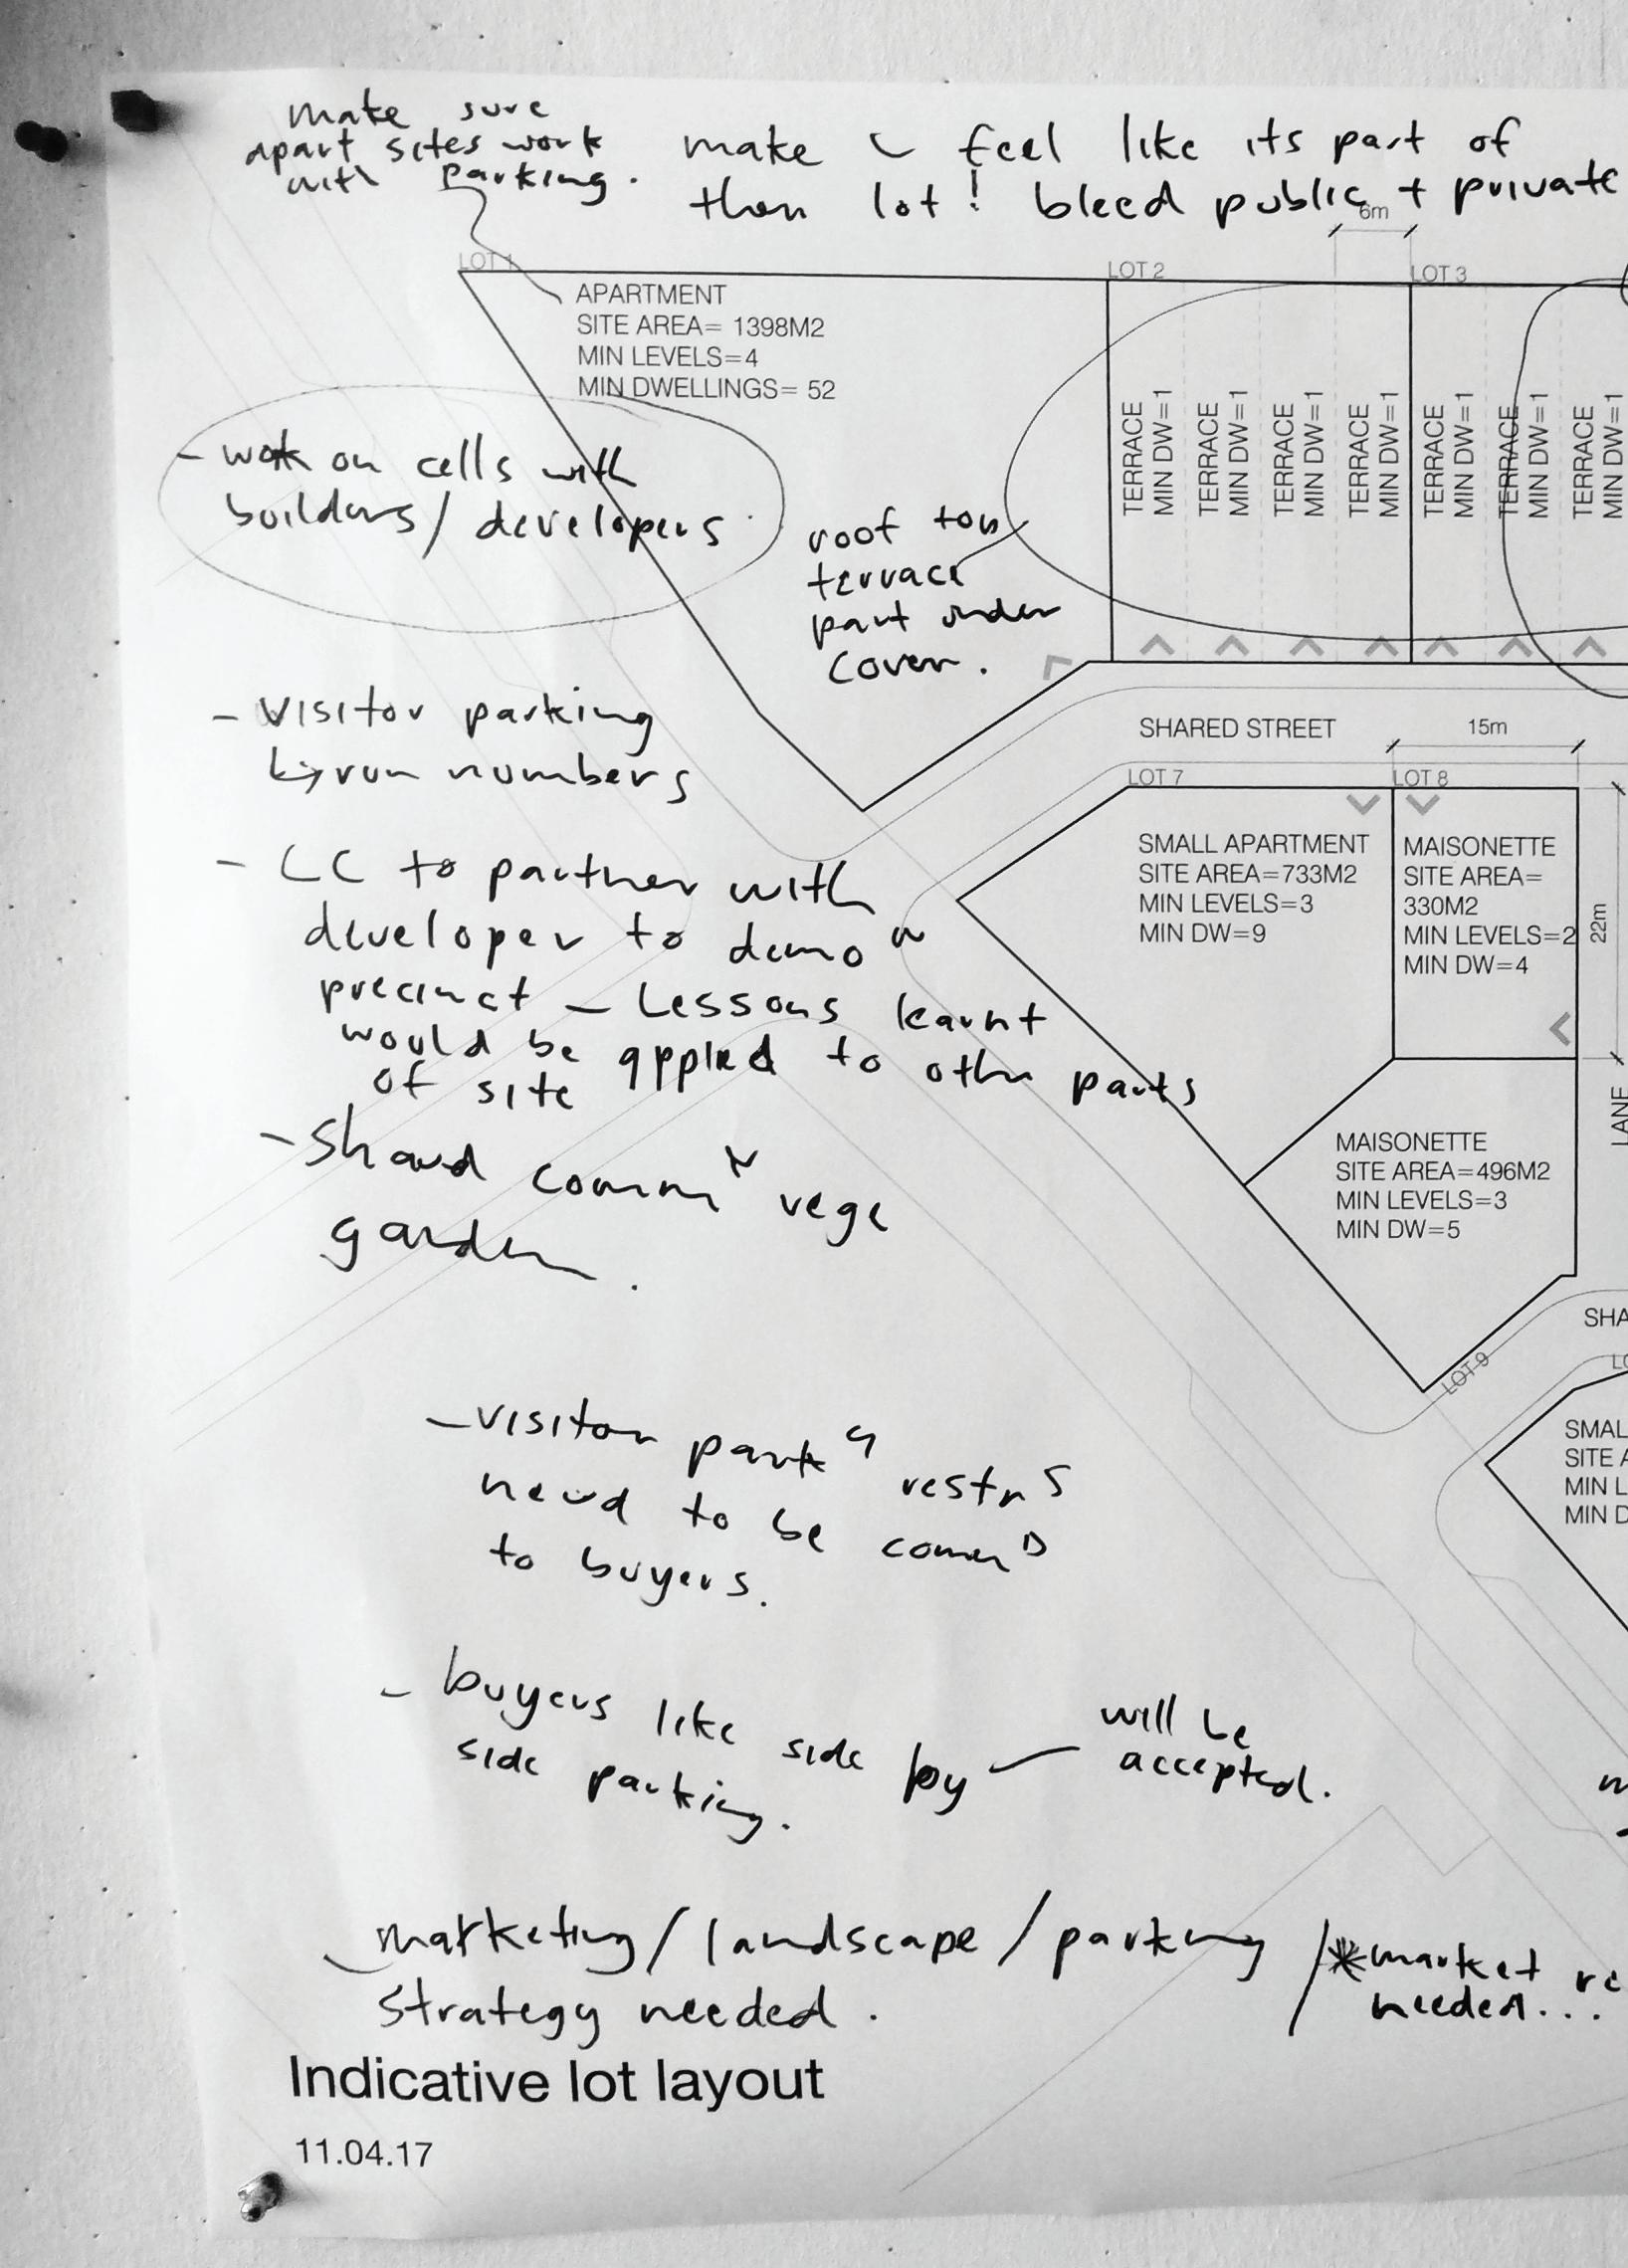 make sure
apart sites work
with parking.
make feel like its part of
then lot! bleed public + private
6m
LOT 1
LOT 2
LOT 3
APARTMENT
SITE AREA= 1398M2
MIN LEVELS=4
MIN DWELLINGS= 52
TERRACE
MIN DW=1
TERRACE
MIN DW=1
TERRACE
MIN DW=1
TERRACE
MIN DW=1
TERRACE
MIN DW=1
TERRACE
MIN DW=1
TERRACE
MIN DW=1
- work on cells with
builders/developers.
roof top
terrace
part under
cover.
- Visitor parking
↳ run numbers
SHARED STREET
15m
LOT 7
LOT 8
SMALL APARTMENT
SITE AREA=733M2
MIN LEVELS=3
MIN DW=9
MAISONETTE
SITE AREA=
330M2
MIN LEVELS=2
MIN DW=4
22m
LANE
- LC to partner with
developer to demo
precinct - Lessons learnt
would be applied to other parts
of site
- Shared comm vege
garden.
MAISONETTE
SITE AREA=496M2
MIN LEVELS=3
MIN DW=5
SHA
LOT 9
SMAL
SITE A
MIN L
MIN D
- visitor park g restr s
need to be comm D
to buyers.
- buyers like side by - will be
accepted.
side parking.
- marketing/landscape/parking /*market re
strategy needed. needed...
Indicative lot layout
11.04.17